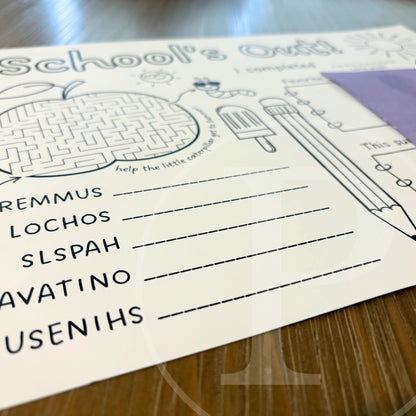 School's Out!
I completed
favorite
This su
help the little caterpillar get to
REMMUS
LOCHOS
SLSPAH
AVATINO
USENIHS